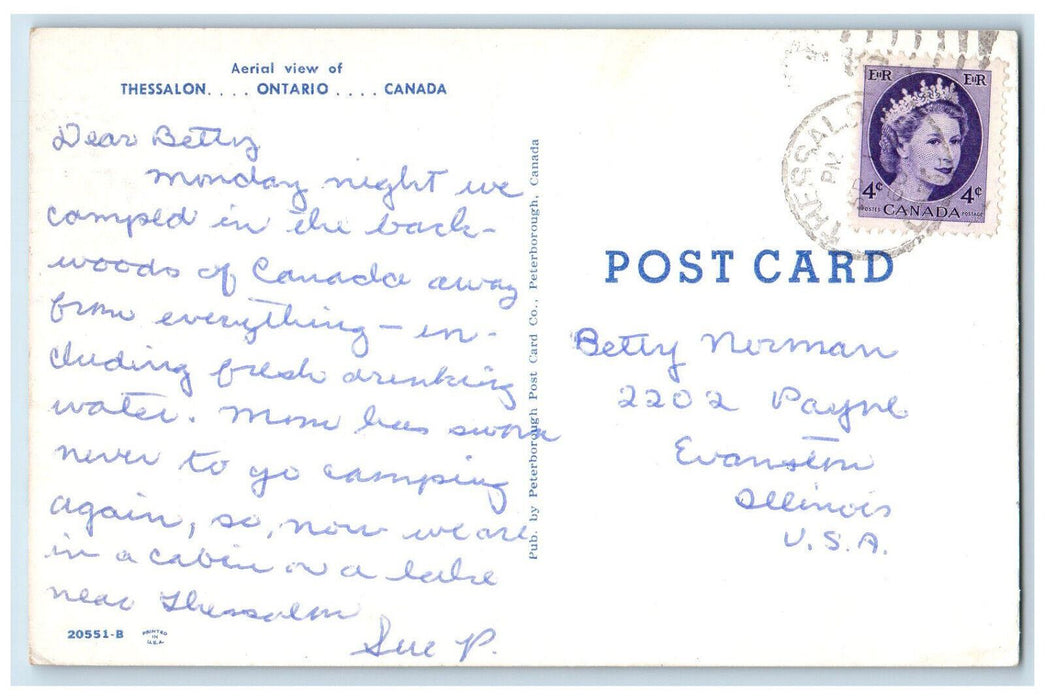 Aerial view of
THESSALON. . . . ONTARIO . . . . CANADA
Dear Betty
Monday night we
camped in the back-
woods of Canada away
from everything — in-
cluding fresh drinking
water. Mom has sworn
never to go camping
again, so, now we are
in a cabin on a lake
near Thessalon
Sue P.
20551-B
PRINTED
IN
U.S.A.
Pub. by Peterborough Post Card Co., Peterborough, Canada
THESSALO
PM
EIIR EIIR
4¢ 4¢
POSTES CANADA POSTAGE
POST CARD
Betty Norman
2202 Payne
Evanston
Illinois
U.S.A.